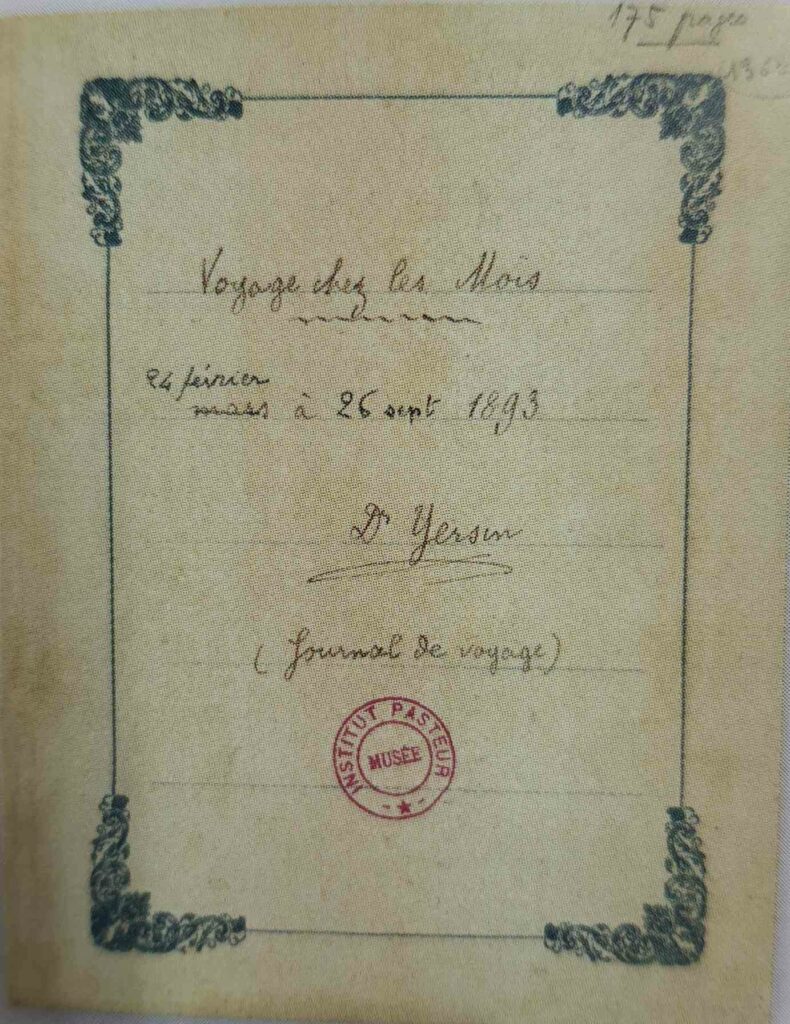 175 pages
Voyage chez les Moïs
24 février
mars à 26 sept 1893
Dr Yersin
(Journal de voyage)
INSTITUT PASTEUR
MUSÉE